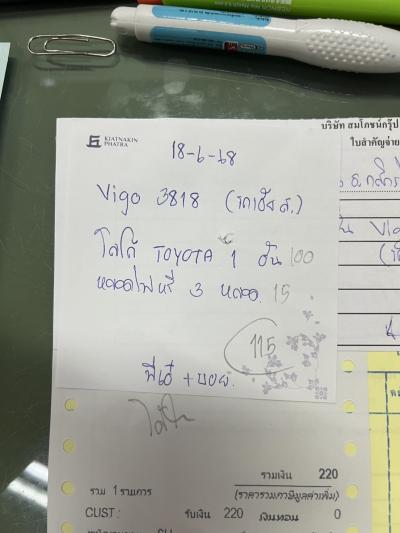 KIATNAKIN
PHATRA
18-6-68
Vigo 3818 (รถเฮีย ส.)
โลโก้ TOYOTA 1 อัน 100
หลอดไฟหรี่ 3 หลอด 15
115
บริษัท สมโภชน์กรุ๊ป
ใบสำคัญจ่าย
รวมเงิน 220
รวม 1 รายการ
(ราคารวมภาษีมูลค่าเพิ่ม)
CUST : รับเงิน 220 เงินทอน 0